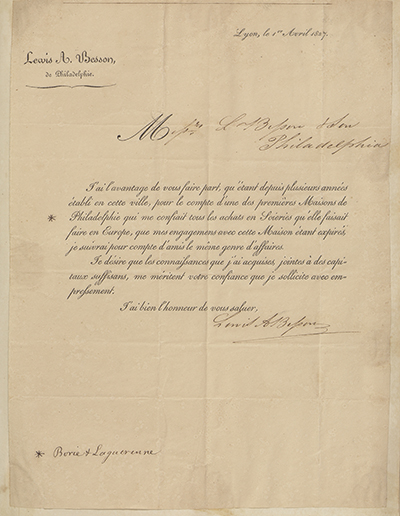 Lewis A. Besson,
de Philadelphie.
Lyon, le 1er Avril 1827.
Messrs Ls Besson & Son
Philadelphia
J'ai l'avantage de vous faire part, qu'étant depuis plusieurs années
établi en cette ville, pour le compte d'une des premières Maisons de
* Philadelphie qui me confiait tous les achats en Soieries qu'elle faisait
faire en Europe, que mes engagemens avec cette Maison étant expirés,
je suivrai pour compte d'amis le même genre d'affaires.
Je désire que les connaissances que j'ai acquises, jointes à des capi-
taux suffisans, me méritent votre confiance que je sollicite avec em-
pressement.
J'ai bien l'honneur de vous saluer,
Lewis A Besson
* Borie & Laguerenne